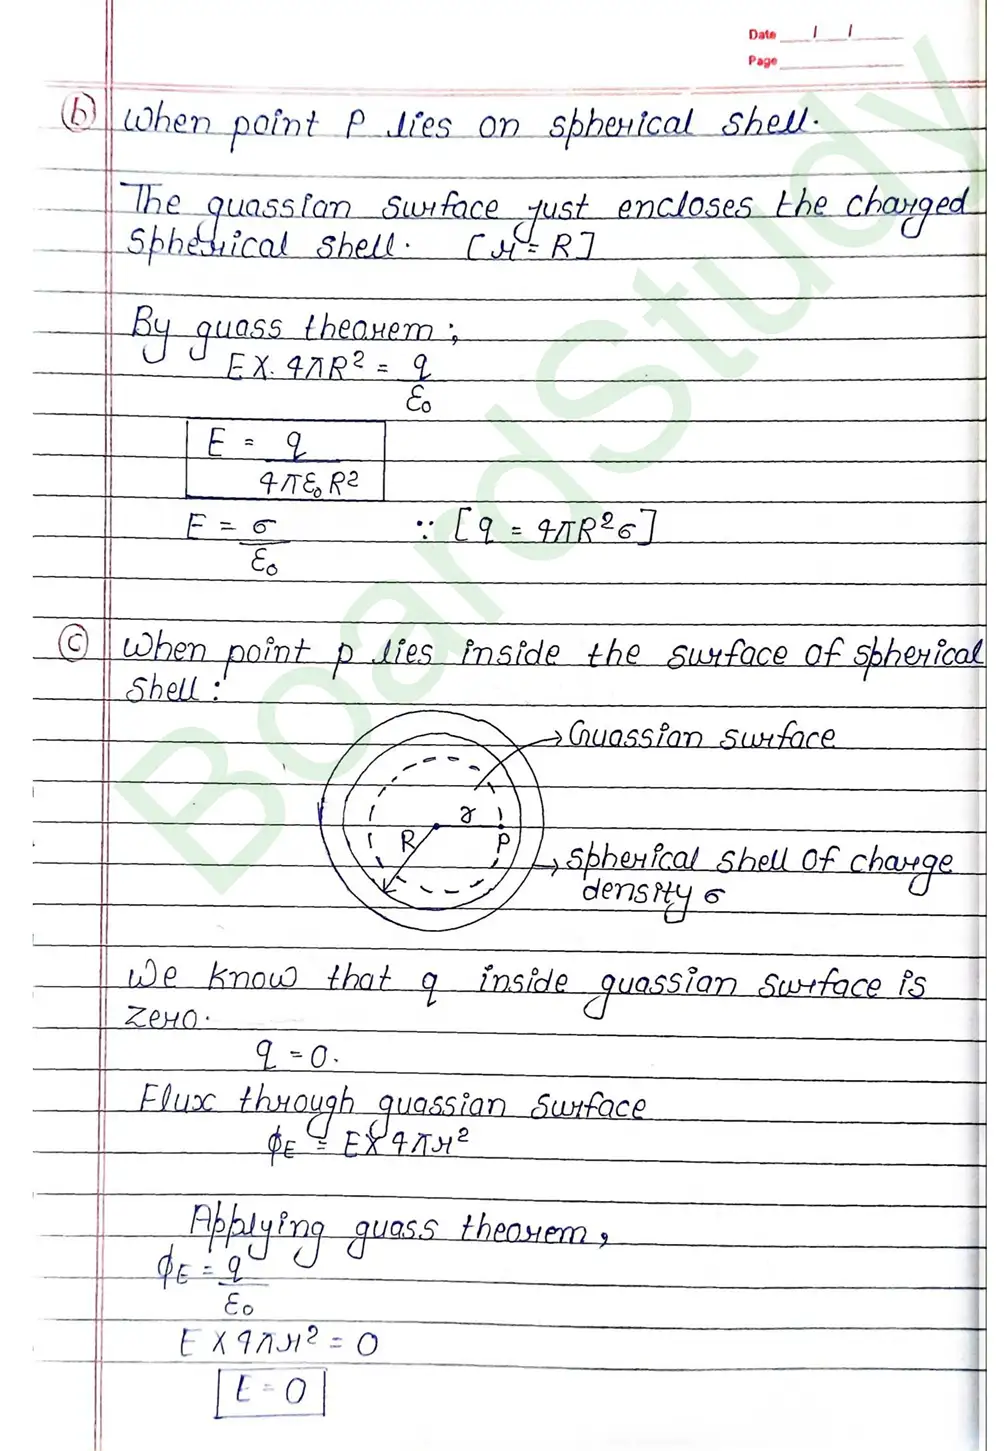 Date / /
Page
(b) When point P lies on spherical shell.
The guassian surface just encloses the charged
spherical shell. [r = R]
By guass theorem;
E X. 4πR² = q
ε₀
E = q
4πε₀R²
E = σ ∵ [q = 4πR²σ]
ε₀
(c) When point p lies inside the surface of spherical
shell:
→ Guassian surface
r
R P
→ spherical shell of charge
density σ
We know that q inside guassian surface is
zero.
q = 0.
Flux through guassian surface
ϕE = E X 4πr²
Applying guass theorem,
ϕE = q
ε₀
E X 4πr² = 0
E = 0
BoardStudy